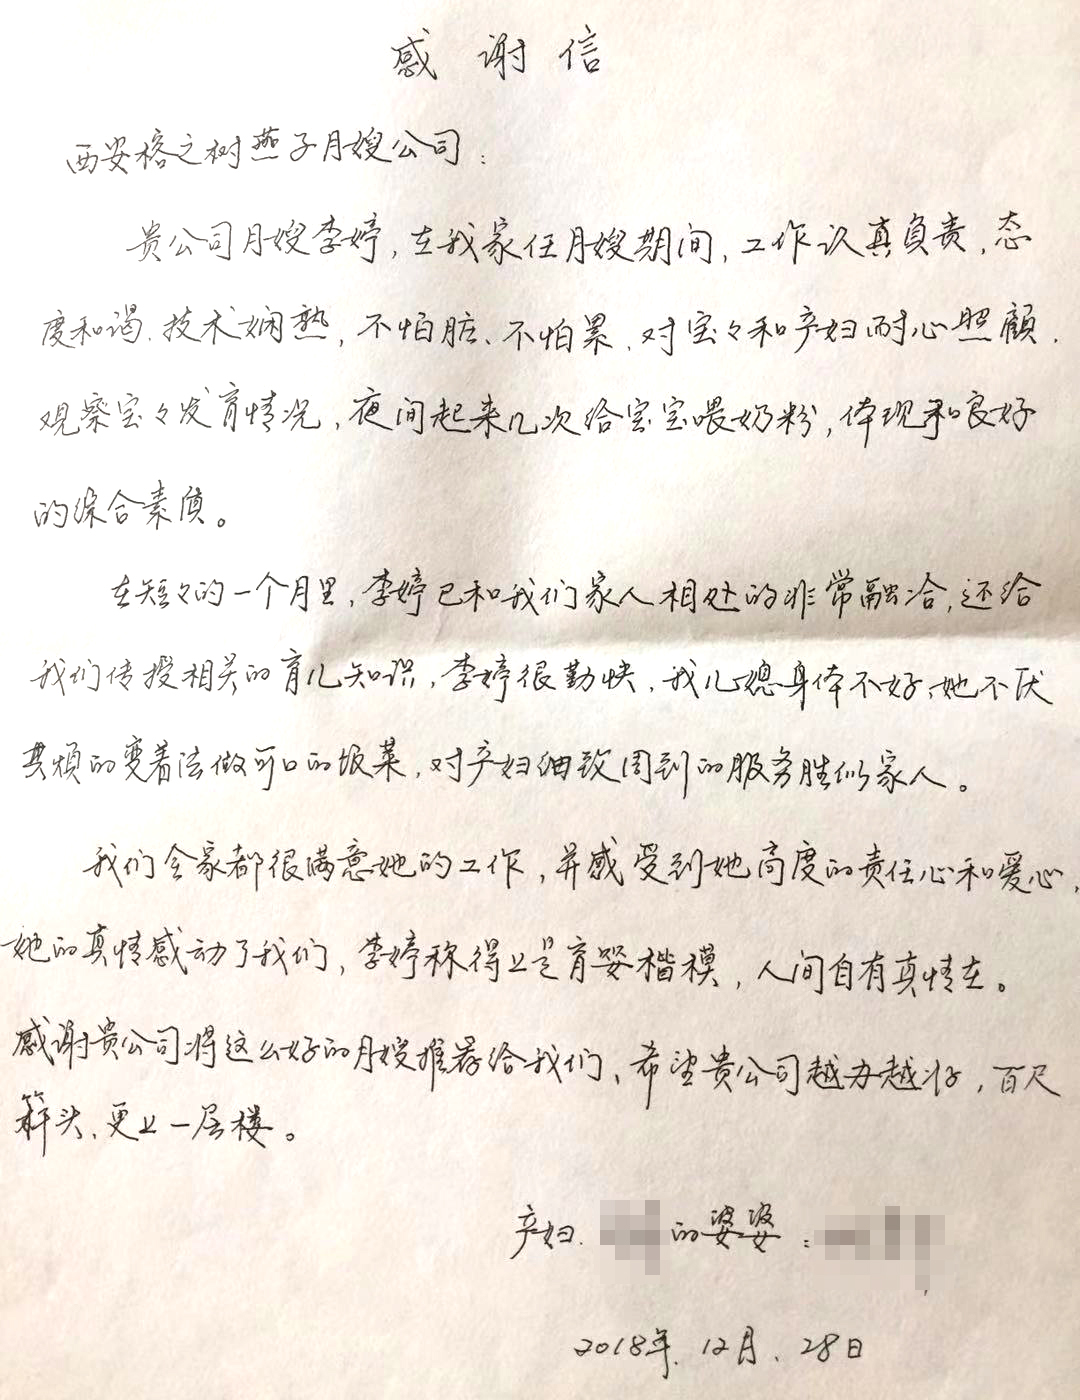 感谢信
西安榕之树燕子月嫂公司：
贵公司月嫂李婷，在我家任月嫂期间，工作认真负责，态
度和谒、技术娴熟，不怕脏、不怕累、对宝々和产妇耐心照顾．
观察宝々发育情况，夜间起来几次给宝宝喂奶粉，体现和良好
的综合素质。
在短々的一个月里，李婷已和我们家人相处的非常融洽，还给
我们传授相关的育儿知识，李婷很勤快，我儿媳身体不好、她不厌
其烦的变着法做可口的饭菜，对产妇细致周到的服务胜似家人。
我们全家都很满意她的工作，并感受到她高度的责任心和爱心，
她的真情感动了我们，李婷称得上是育婴楷模，人间自有真情在。
感谢贵公司将这么好的月嫂推荐给我们、希望贵公司越办越好，百尺
竿头、更上一层楼。
产妇．的婆婆：
2018年．12月．28日